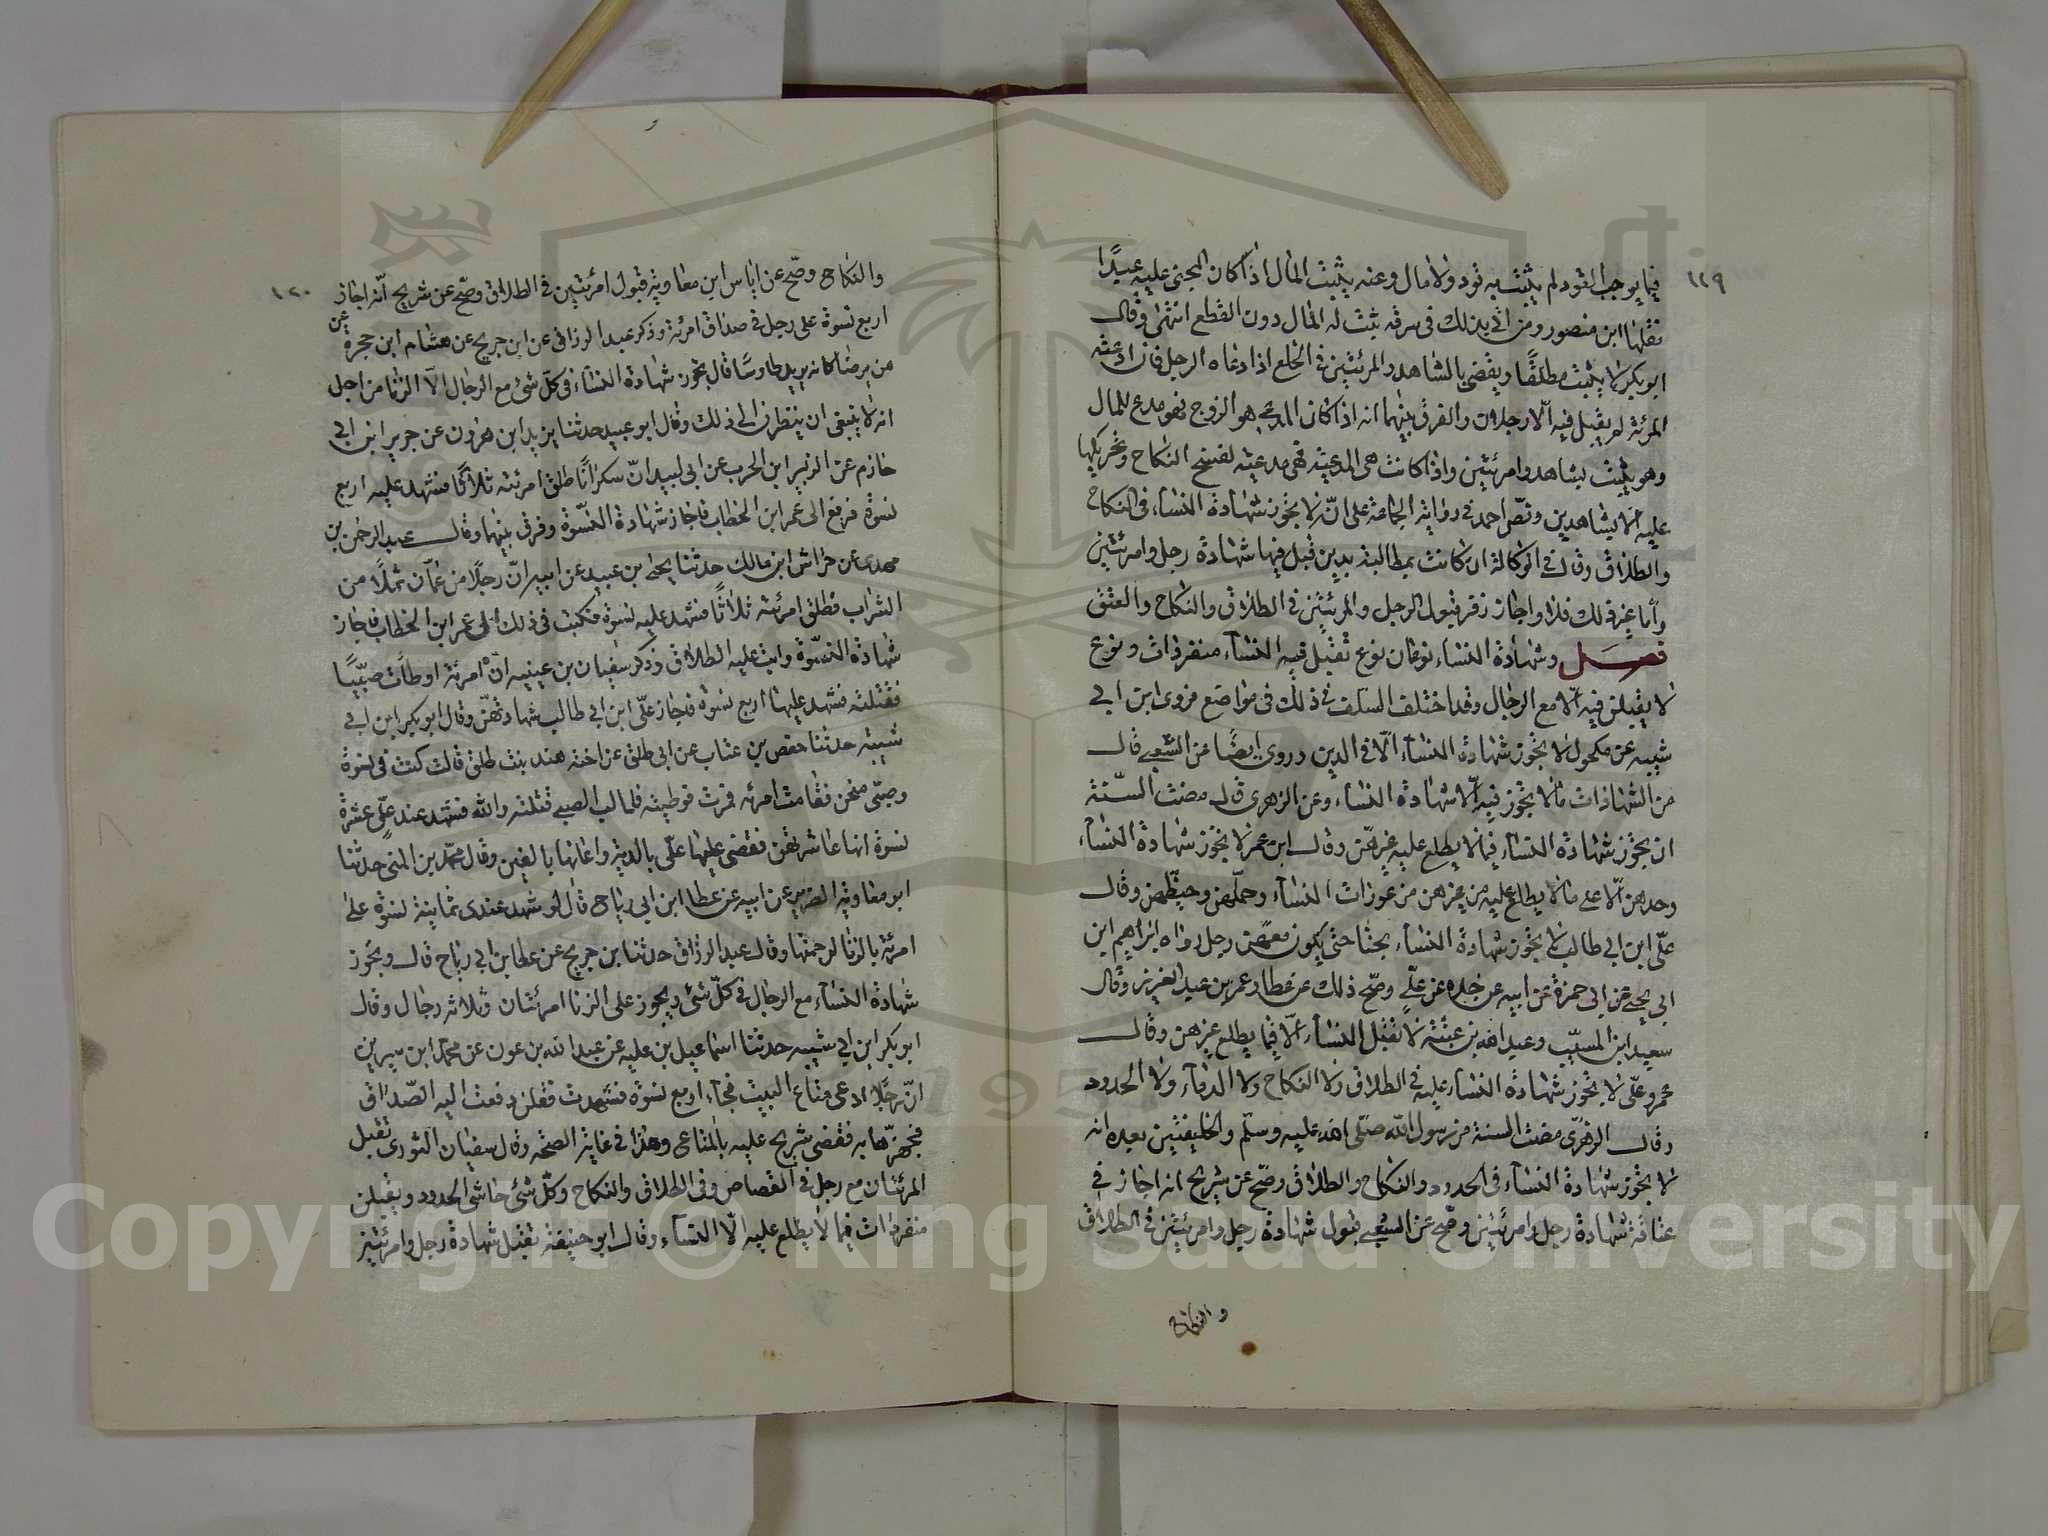 ١١٩
فيما يوجب القود لم يثبت به قود ولا مال وعنه يثبت المال اذا كان المجني عليه عبدًا
نقلها ابن منصور ومن اتى بذلك في سرقه ثبت له المال دون القطع انتهى وقال
ابو بكر لا يثبت مطلقًا ويقضي بالشاهد والمرئتين في الخلع اذا ادعاه الرجل فان ادعته
المرئة لم يقبل فيه الا رجلان والفرق بينهما انه اذا كان المدعي هو الزوج فهو مدع للمال
وهو يثبت بشاهد وامرئتين واذا كانت هي المدعية فهي مدعية لفسخ النكاح وتحريمها
عليه الا بشاهدين ونصّ احمد في رواية الجماعة على انّه لا يجوز شهادة النساء في النكاح
والطلاق وقال في الوكالة ان كانت بمطالبة بدين قبل فيها شهادة رجل وامرئتين
وأما غير ذلك فلا واجاز زفر قبول الرجل والمرئتين في الطلاق والنكاح والعتق
فصل وشهادة النساء نوعان نوع تقبل فيه النساء منفردات ونوع
لا يقبلن فيه الا مع الرجال وقد اختلف السلف في ذلك في مواضع فروى ابن ابي
شيبه عن مكحول لا يجوز شهادة النساء الا في الدين وروى ايضًا عن الشعبي قال
من الشهادات ما لا يجوز فيه الّا شهادة النساء وعن الزهري قال مضت السّنة
ان يجوز شهادة النساء فيما لا يطلع عليه غيرهن وقال ابن عمر لا يجوز شهادة النساء
وحدهن الّا على ما لا يطلع عليه من غيرهن من عورات النساء وحملهن وحيضهن وقال
علّى ابن ابي طالب لا يجوز شهادة النساء بحتا حتى يكون معهن رجل رواه ابراهيم ابن
ابي يحيى عن ابي حمزة عن ابيه عن جده عن علّي وصح ذلك عن عطا وعمر بن عبد العزيز وقال
سعيد ابن المسيّب وعبد الله بن عتبة لا تقبل النساء الا فيما يطلع غيرهن وقال
عمر وعلّى لا يجوز شهادة النساء عليه في الطلاق ولا النكاح ولا الدماء ولا الحدود
وقال الزهرّى مضت السنة من رسول الله صلّى الله عليه وسلّم والخليفتين بعده انه
لا يجوز شهادة النساء في الحدود والنكاح والطلاق وصح عن شريح انه اجاز في
عتاقة شهادة رجل وامرئتين وصح عن الشعبي قبول شهادة رجل وامرئتين في الطلاق
والنكاح
١٢٠
والنكاح وصحّ عن اياس ابن معاوية قبول امرئتين في الطلاق وصحّ عن شريح انّه اجاز
اربع نسوة على رجل في صداق امرئة وذكر عبد الرزاق عن ابن جريج عن هشام ابن حجرة عن
من يرضا كانه يريد طاوسًا قال يجوز شهادة النساء في كلّ شئ مع الرجال الّا الزنا من اجل
انه لا ينبغى ان ينظرن الى ذلك وقال ابو عبيد حدثنا يزيد ابن هرون عن جرير ابن ابي
حازم عن الزبير ابن الحرب عن ابي لبيد انّ سكرانًا طلق امرئته ثلاثًا فشهد عليه اربع
نسوة فرفع الى عمر ابن الخطاب فاجاز شهادة النسّوة وفرق بينهما وقال عبد الرحمن بن
مهدى عن خراش ابن مالك حدثنا يحي بن عبيد عن ابيه انّ رجلًا من عمان ثملًا من
الشراب فطلق امرئته ثلاثًا فشهد عليه نسوة فكتب في ذلك الى عمر ابن الخطاب فاجاز
شهادة النسّوة واثبت عليه الطلاق وذكر سفيان بن عيينه انّ امرئة اوطأت صبيًا
فقتلته فشهد عليها اربع نسوة فاجاز علّى ابن ابي طالب شهادتهن وقال ابو بكر ابن ابي
شيبه حدثنا حفص بن غتاب عن ابي طلق عن اخته هند بنت طلق قالت كنت في نسوة
وصبّى منحن فقامت امرئه فمرت فوطيته فلما الصبى قتلته والله فشهد عند علّى عشرة
نسوة انها عاشرتهن فقضى عليها علّى بالدية واعانها بالفين وقال محمّد بن المثنى حدثنا
ابو معاوية الضرير عن ابيه عن عطا ابن ابي رباح قال لو شهد عندى ثمانية نسوة على
امرئة بالزنا لرجمتها وقال عبد الرزاق حدثنا بن جريج عن عطا بن ابي رباح قال ويجوز
شهادة النساء مع الرجال في كلّ شئ ويجوز على الزنا امرئتان وثلاثه رجال وقال
ابو بكر ابن ابي شيبه حدثنا اسماعيل بن عليه عن عبد الله بن عون عن محمد ابن سيرين
انّ رجلًا ادعى متاع البيت فجاء اربع نسوة فشهدت فقلن دفعت اليه الصّداق
فجهزّها به فقضى شريح عليه بالمتاعى وهذا في غاية الصحّه وقال سفيان الثورى تقبل
المرئتان مع رجل في القصاص وفى الطلاق والنكاح وكلّ شئ حاشى الحدود ويقبلن
منفردات فيما لا يطلع عليه الّا النساء وقال ابو حنيفة تقبل شهادة رجل وامرئتين
Copyright © King Saud University
1957